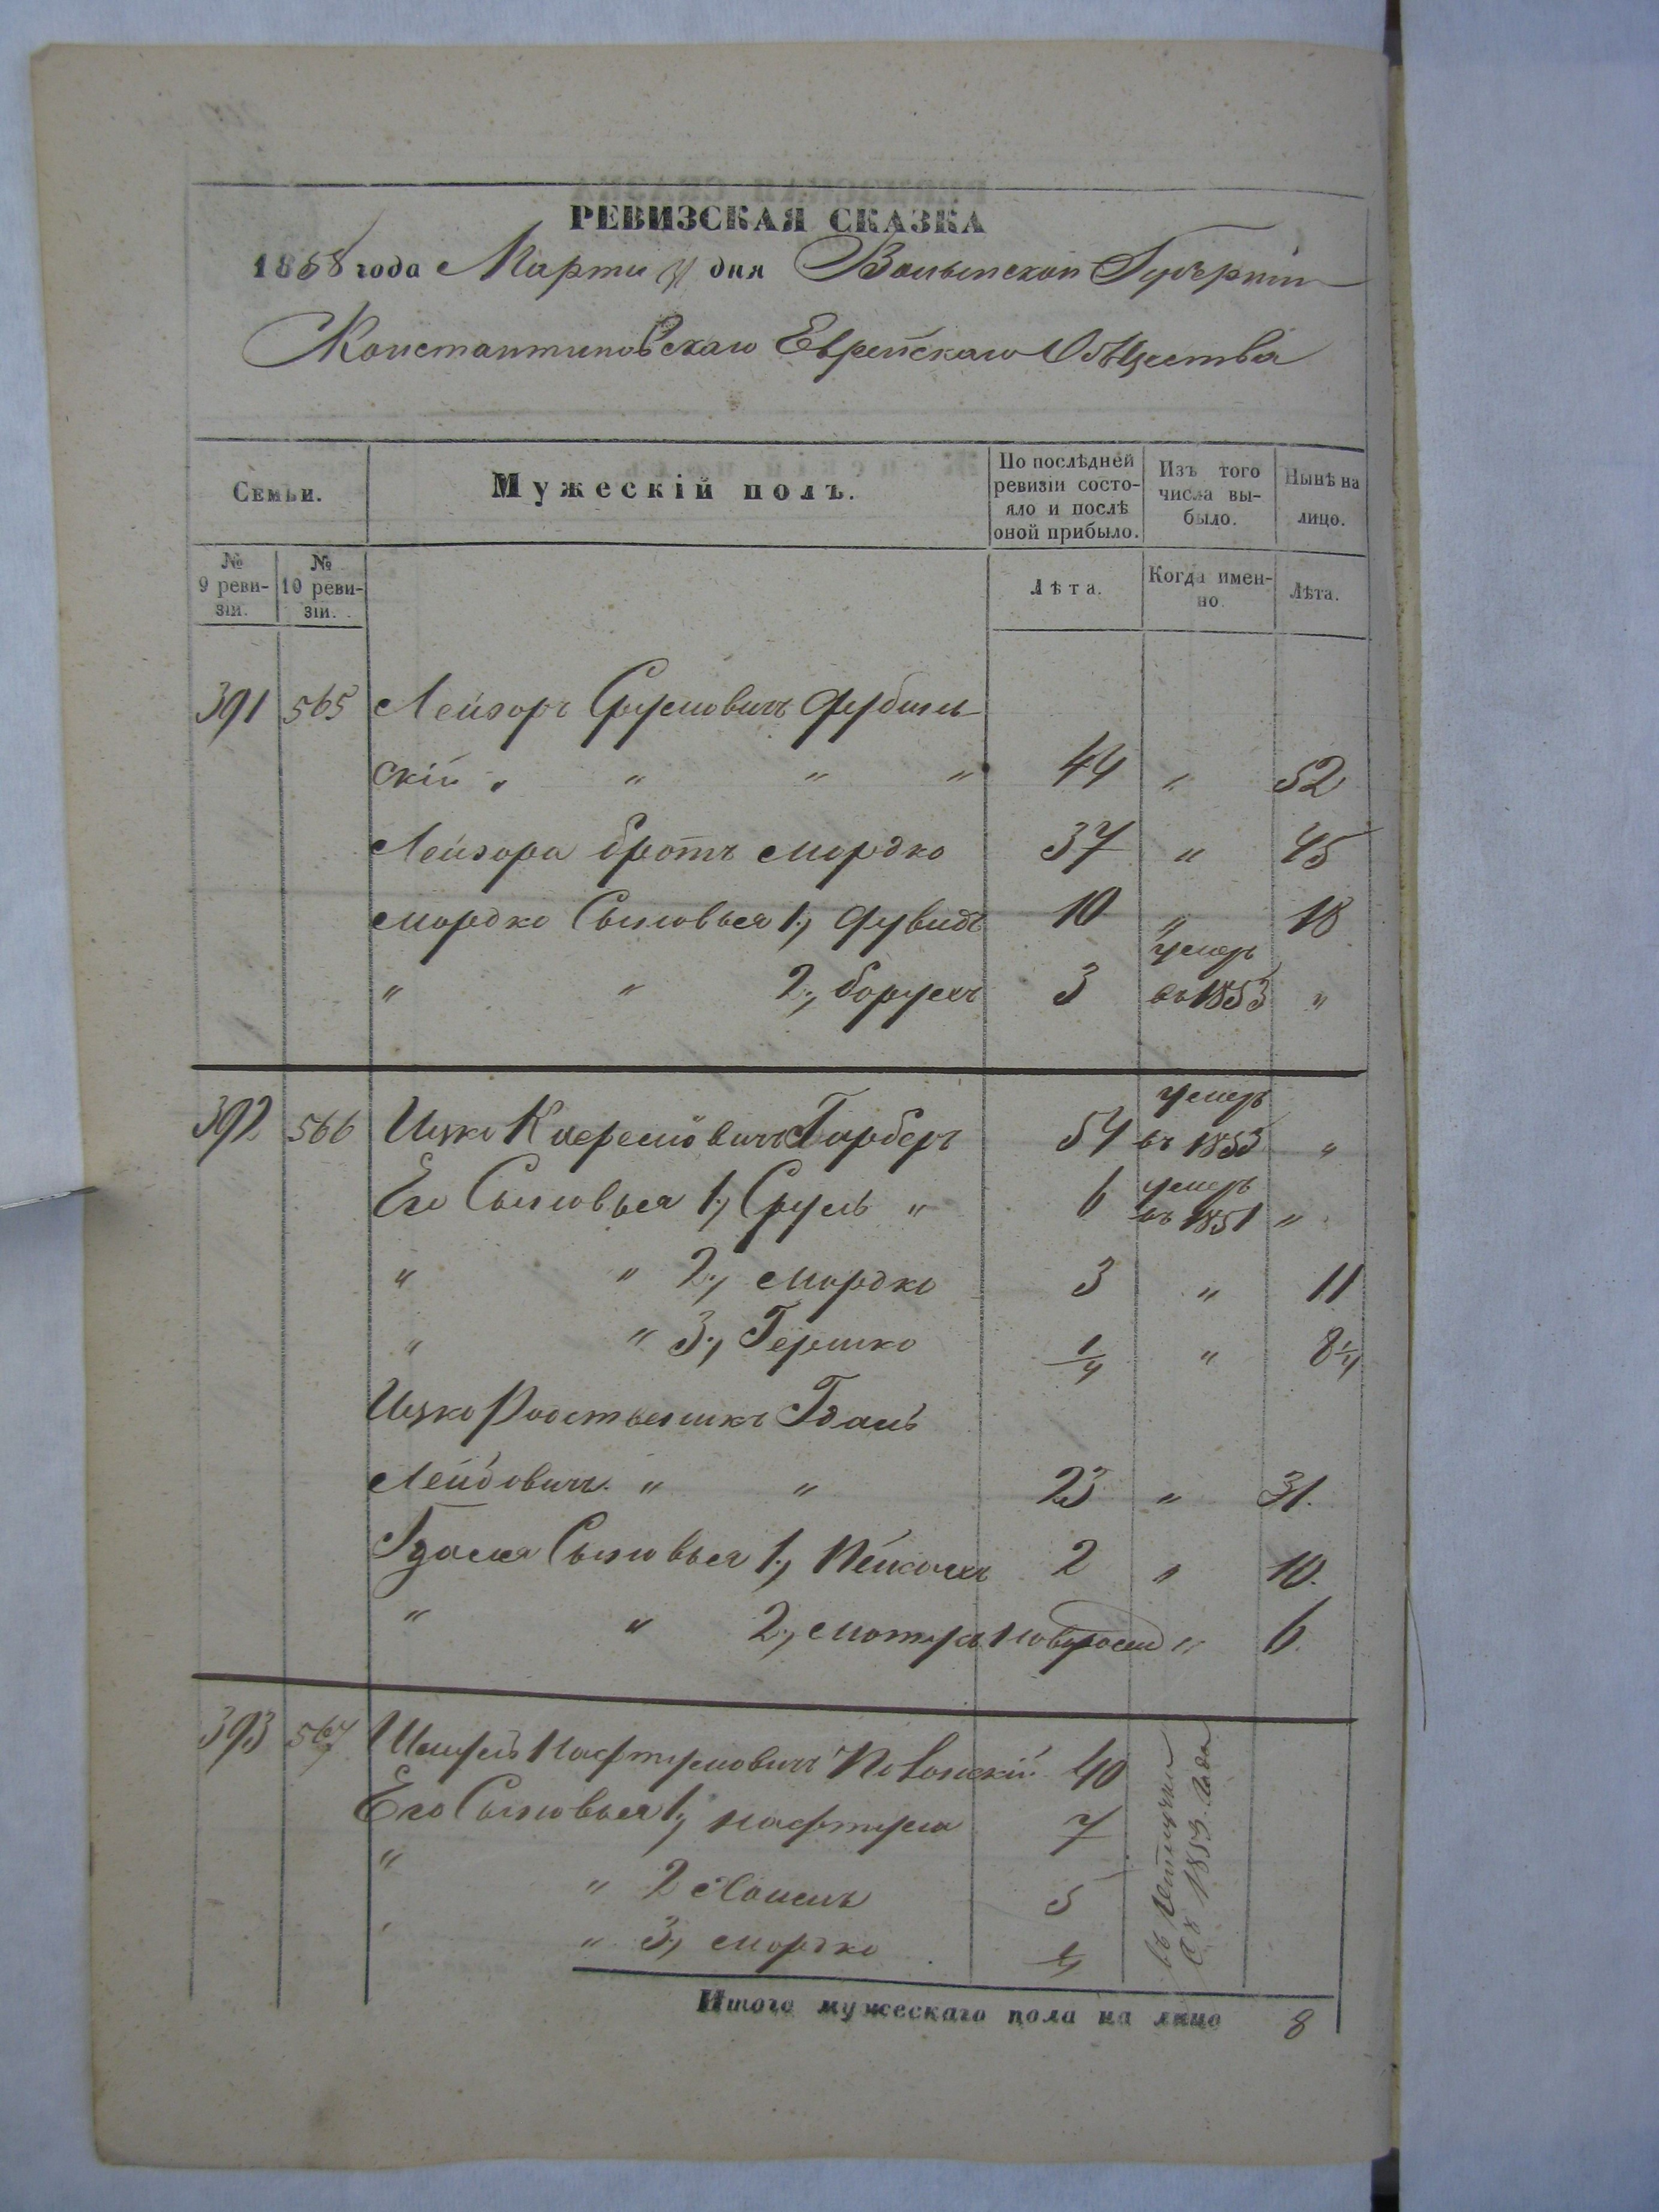 РЕВИЗСКАЯ СКАЗКА
1858 года Марта дня Волынской Губерніи
Константиновскаго Еврейскаго Общества
Семьи. Мужескій полъ. По послѣдней ревизіи состояло и послѣ оной прибыло. Изъ того числа выбыло. Нынѣ на лицо.
№ 9 ревизіи. № 10 ревизіи. Лѣта. Когда именно. Лѣта.
391 565 Лейзоръ Срулевичъ Дубин
скій „ „ „ „ 44 „ 52
Лейзора братъ Мордко 37 „ 45
Мордко Сыновья 1, Дувидъ 10 „ 18
„ „ 2, Борухъ 3 умеръ въ 1853 „
392 566 Ицко Гарберъ 54 умеръ въ 1853 „
Его Сыновья 1, Сруль „ 6 умеръ въ 1851 „
„ „ 2, Мордко 3 „ 11
„ „ 3, Гершко 1/4 „ 8 1/4
Ицко Родственникъ Гдаль
Лейбовичъ „ „ 23 „ 31.
Гдаля Сыновья 1, Пейсахъ 2 „ 10.
„ „ 2, новорожд „ 6.
393 567 Шмуль Нафтуловичъ 40
Его Сыновья 1, Нафтула 7
„ „ 2 Хаимъ 5
„ „ 3, Мордко 1/4
1853. Года
Итого мужескаго пола на лицо 8